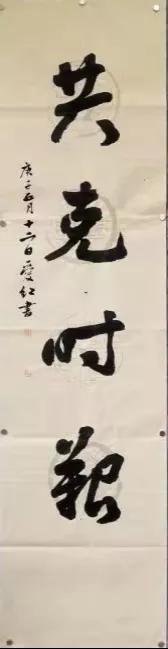 共克时艰
庚子正月十二日爱红书